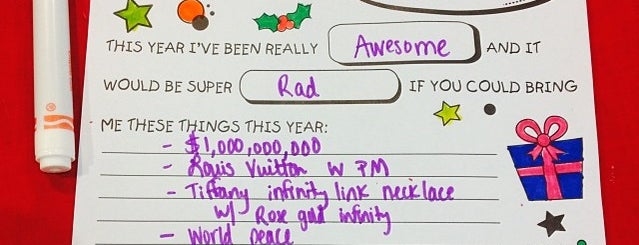 THIS YEAR I'VE BEEN REALLY Awesome AND IT
WOULD BE SUPER Rad IF YOU COULD BRING
ME THESE THINGS THIS YEAR:
- $1,000,000,000
- Louis Vuitton W PM
- Tiffany infinity link necklace
w/ Rose gold infinity
- World peace